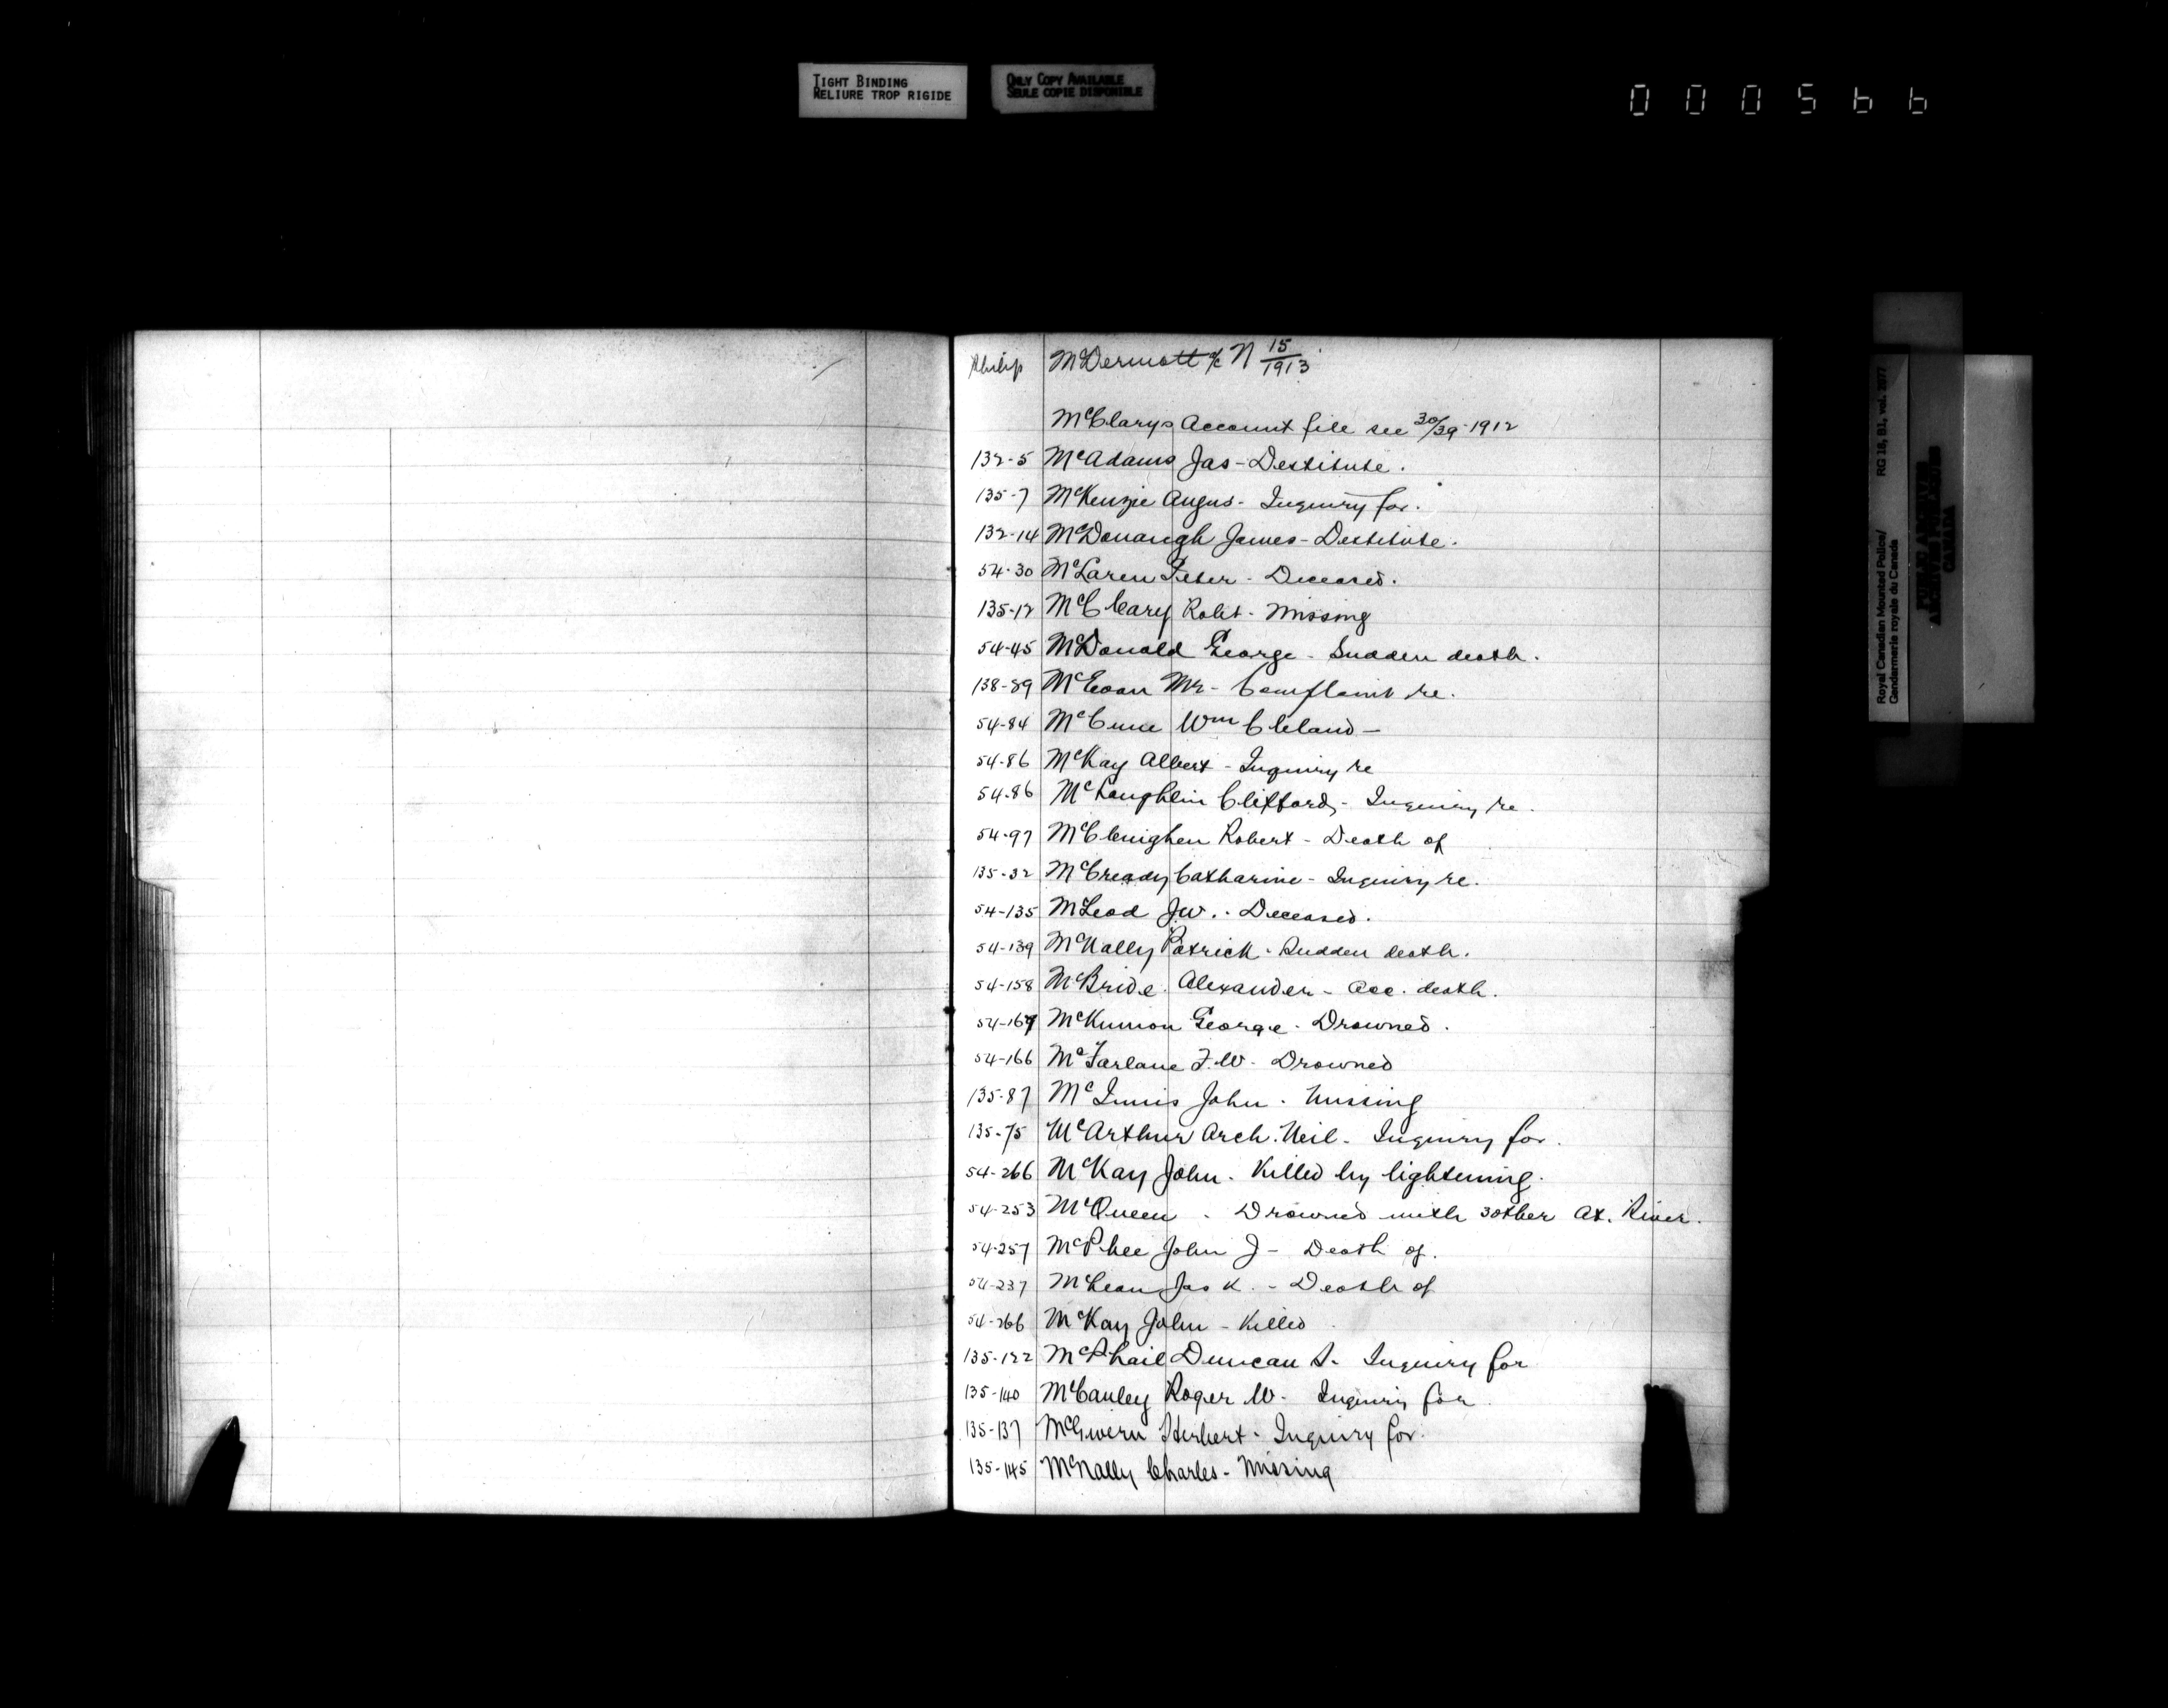 TIGHT BINDING
RELIURE TROP RIGIDE
ONLY COPY AVAILABLE
SEULE COPIE DISPONIBLE
000566
Philip McDermott a/c N 15/1913
McClarys Account file see 30/39-1912
132-5 McAdams Jas - Destitute.
135-7 McKenzie Angus - Inquiry for.
132-14 McDonaugh James - Destitute.
54-30 McLaren Peter - Deceased.
135-12 McCleary Robt - Missing
54-45 McDonald George - Sudden death.
138-89 McEwan Mr - Complaint re.
54-84 McCune Wm Cleland -
54-86 McKay Albert - Inquiry re
54-86 McLaughlin Clifford - Inquiry re.
54-97 McClenighen Robert - Death of
135-32 McCready Catharine - Inquiry re.
54-135 McLeod J.W. - Deceased.
54-139 McNally Patrick - Sudden death.
54-158 McBride Alexander - Acc. death.
54-167 McKinnon George - Drowned.
54-166 McFarlane F.W. - Drowned
135-87 McInnis John - Missing
135-75 McArthur Arch. Neil - Inquiry for.
54-266 McKay John - Killed by lightening.
54-253 McQueen - Drowned with 3 other At. River.
54-257 McPhee John J - Death of.
54-237 McLean Jas K. - Death of
54-266 McKay John - Killed
135-122 McPhail Duncan S. Inquiry for
135-140 McCauley Roger W. Inquiry for
135-137 McGivern Herbert - Inquiry for.
135-145 McNally Charles - Missing
Royal Canadian Mounted Police/ RG 18, B1, vol. 2077
Gendarmerie royale du Canada
PUBLIC ARCHIVES
ARCHIVES PUBLIQUES
CANADA